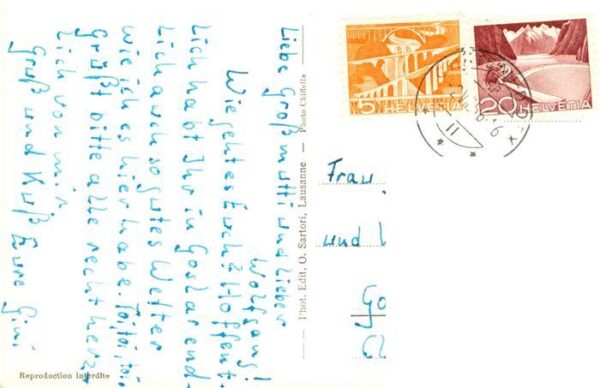 Liebe Großmutti und lieber
Wolfgang!
Wie geht es Euch? Hoffent-
lich habt Ihr in Goslar end-
lich auch so gutes Wetter
wie ich es hier habe. Toi, toi, toi
Grüßt bitte alle recht herz-
lich von mir.
Gruß und Kuß Eure Gini
Reproduction interdite
Phot. Edit. O. Sartori, Lausanne — Photo
5 HELVETIA
20 HELVETIA
Frau
und
Go